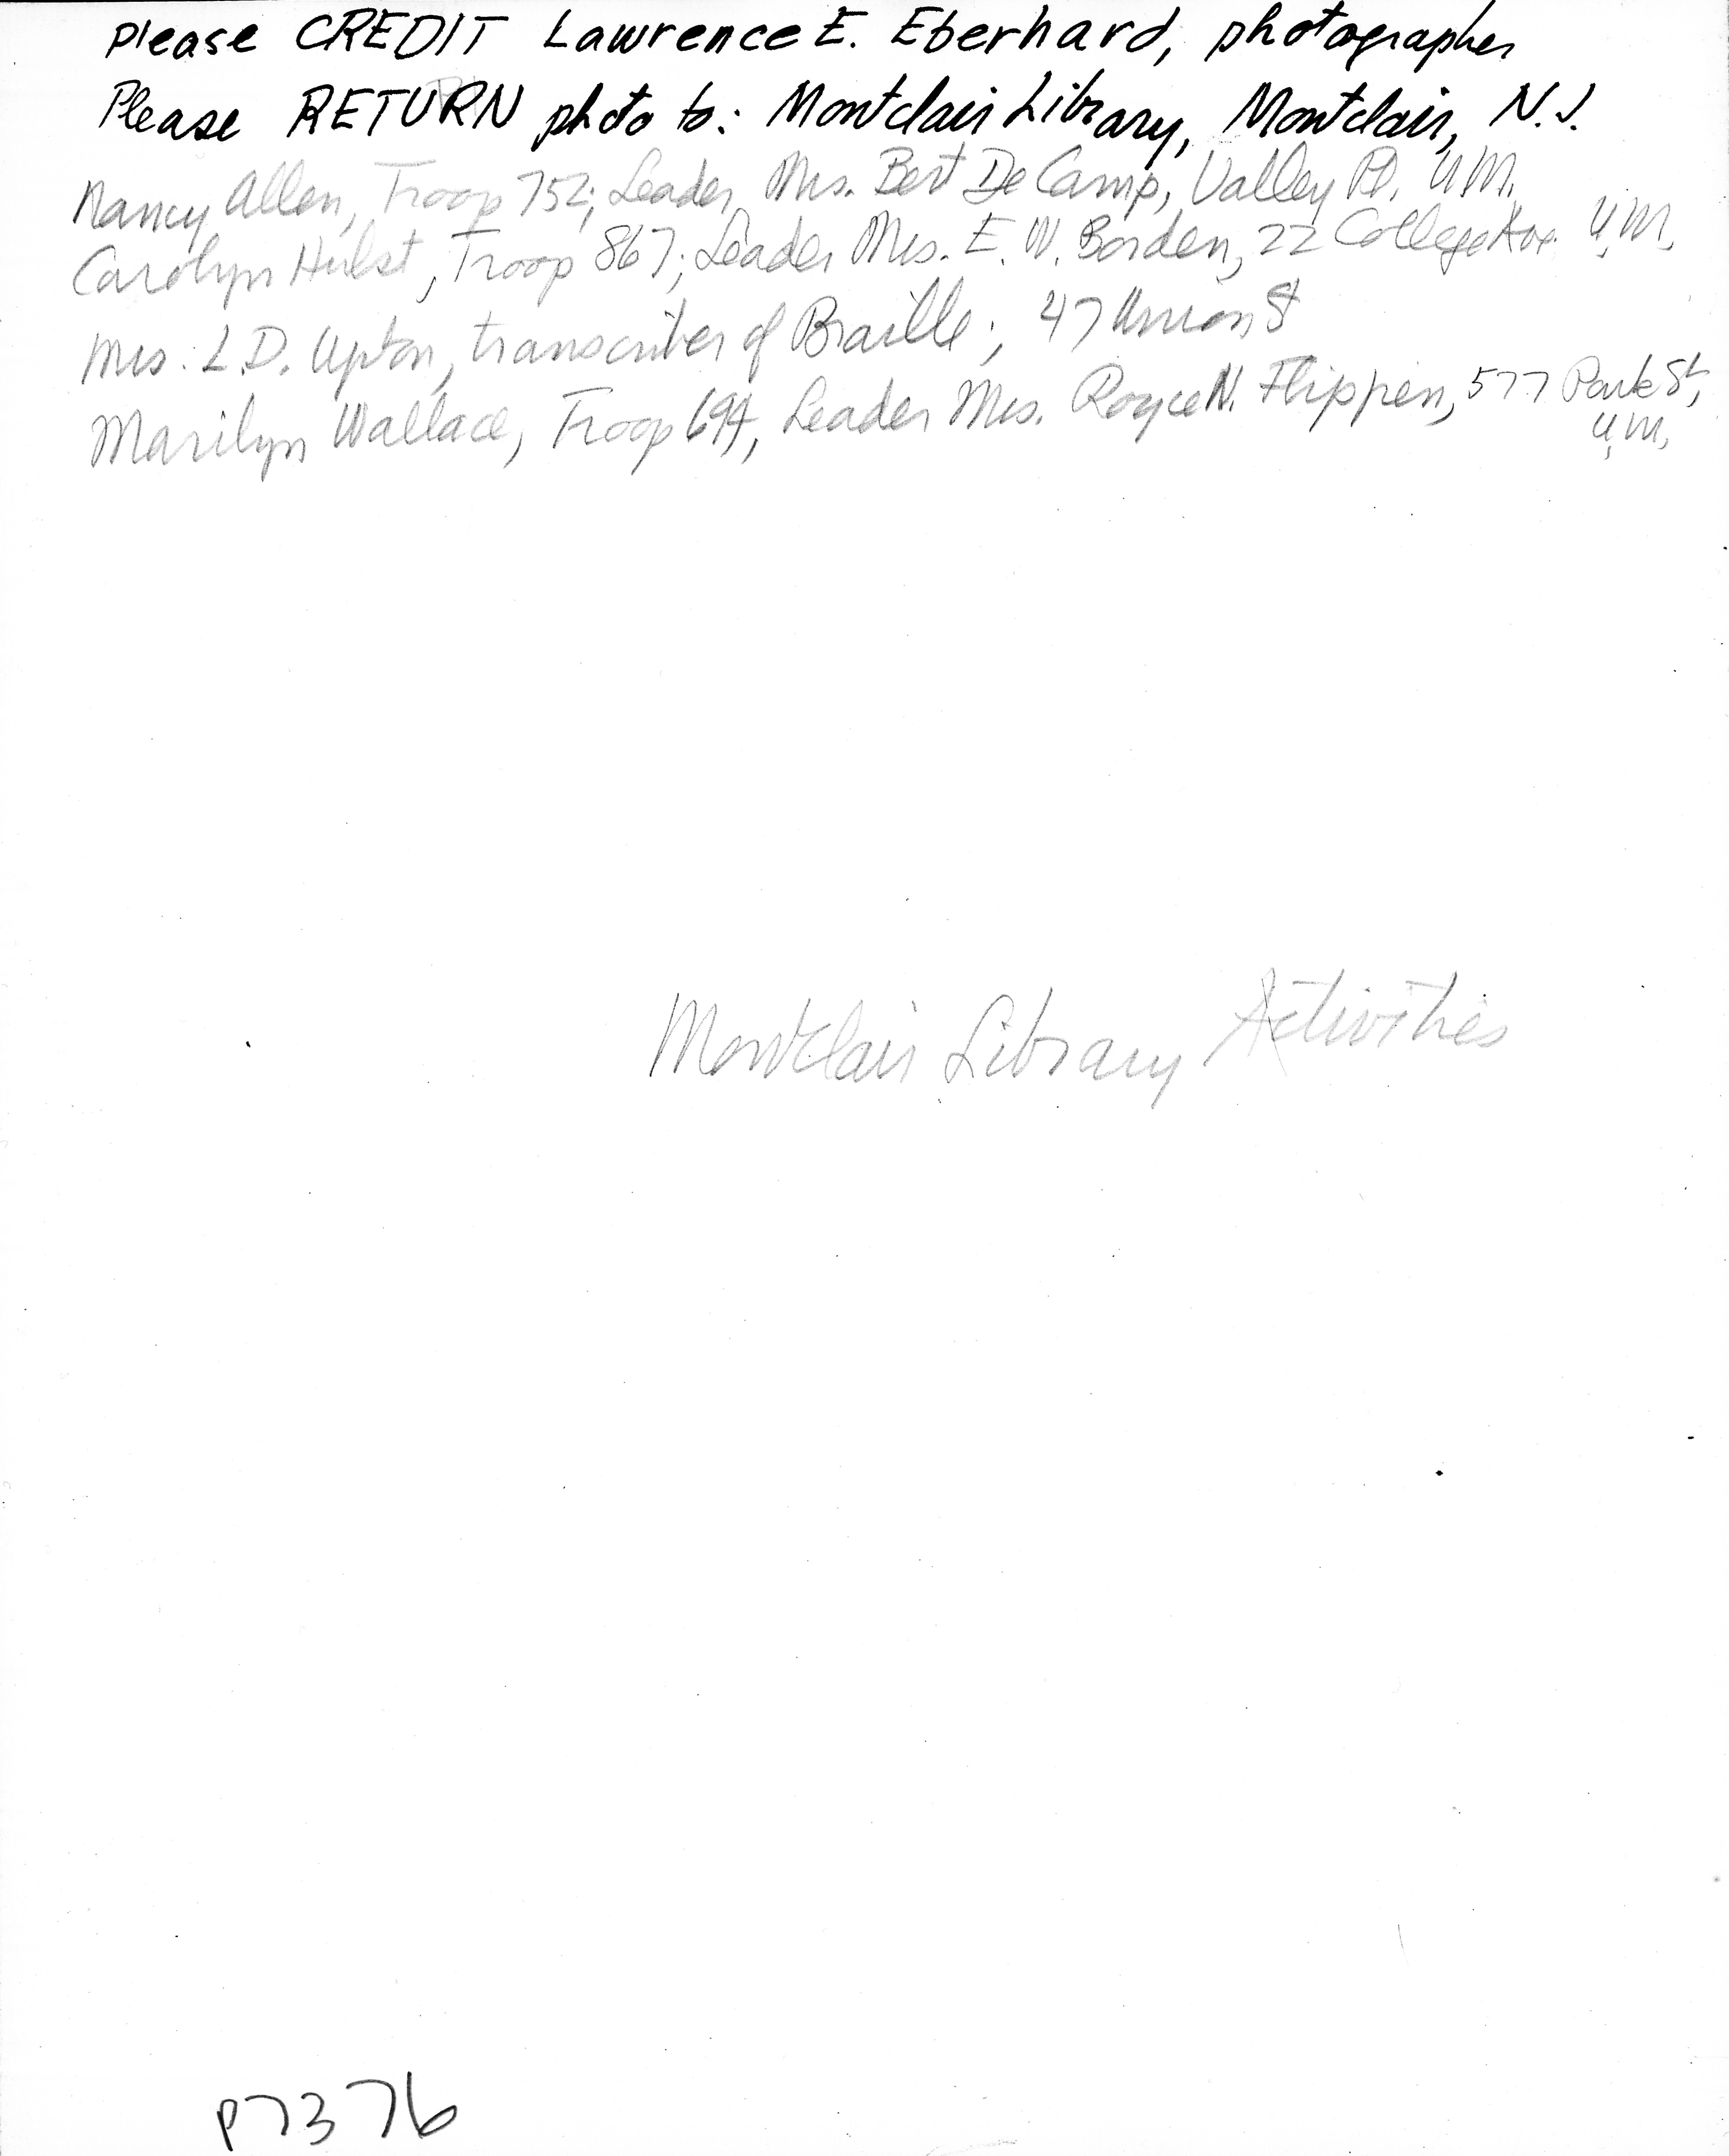 please CREDIT Lawrence E. Eberhard, photographer
Please RETURN photo to: Montclair Library, Montclair, N.J.
Nancy Allen, Troop 752; Leader Mrs. Bert De Camp, Valley Rd. U.M.
Carolyn Hulst, Troop 867; Leader Mrs. E. W. Borden, 22 College Ave. U.M.
Mrs. L.D. Upton, transcriber of Braille; 47 Union St
Marilyn Wallace, Troop 694, Leader Mrs. Royce N. Flippen, 577 Park St,
U.M.
Montclair Library Activities
P7376